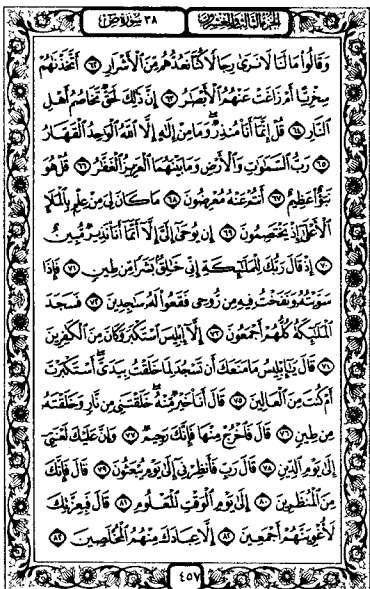 الجزء الثالث والعشرون
٣٨ سورة ص
وَقَالُوا۟ مَا لَنَا لَا نَرَىٰ رِجَالًا كُنَّا نَعُدُّهُم مِّنَ ٱلْأَشْرَارِ ٦٢ أَتَّخَذْنَٰهُمْ
سِخْرِيًّا أَمْ زَاغَتْ عَنْهُمُ ٱلْأَبْصَٰرُ ٦٣ إِنَّ ذَٰلِكَ لَحَقٌّ تَخَاصُمُ أَهْلِ
ٱلنَّارِ ٦٤ قُلْ إِنَّمَآ أَنَا۠ مُنذِرٌ ۖ وَمَا مِنْ إِلَٰهٍ إِلَّا ٱللَّهُ ٱلْوَٰحِدُ ٱلْقَهَّارُ
٦٥ رَبُّ ٱلسَّمَٰوَٰتِ وَٱلْأَرْضِ وَمَا بَيْنَهُمَا ٱلْعَزِيزُ ٱلْغَفَّٰرُ ٦٦ قُلْ هُوَ
نَبَؤٌا۟ عَظِيمٌ ٦٧ أَنتُمْ عَنْهُ مُعْرِضُونَ ٦٨ مَا كَانَ لِىَ مِنْ عِلْمٍۭ بِٱلْمَلَإِ
ٱلْأَعْلَىٰٓ إِذْ يَخْتَصِمُونَ ٦٩ إِن يُوحَىٰٓ إِلَىَّ إِلَّآ أَنَّمَآ أَنَا۠ نَذِيرٌ مُّبِينٌ
٧٠ إِذْ قَالَ رَبُّكَ لِلْمَلَٰٓئِكَةِ إِنِّى خَٰلِقٌۢ بَشَرًا مِّن طِينٍ ٧١ فَإِذَا
سَوَّيْتُهُۥ وَنَفَخْتُ فِيهِ مِن رُّوحِى فَقَعُوا۟ لَهُۥ سَٰجِدِينَ ٧٢ فَسَجَدَ
ٱلْمَلَٰٓئِكَةُ كُلُّهُمْ أَجْمَعُونَ ٧٣ إِلَّآ إِبْلِيسَ ٱسْتَكْبَرَ وَكَانَ مِنَ ٱلْكَٰفِرِينَ
٧٤ قَالَ يَٰٓإِبْلِيسُ مَا مَنَعَكَ أَن تَسْجُدَ لِمَا خَلَقْتُ بِيَدَىَّ ۖ أَسْتَكْبَرْتَ
أَمْ كُنتَ مِنَ ٱلْعَالِينَ ٧٥ قَالَ أَنَا۠ خَيْرٌ مِّنْهُ ۖ خَلَقْتَنِى مِن نَّارٍ وَخَلَقْتَهُۥ
مِن طِينٍ ٧٦ قَالَ فَٱخْرُجْ مِنْهَا فَإِنَّكَ رَجِيمٌ ٧٧ وَإِنَّ عَلَيْكَ لَعْنَتِىٓ
إِلَىٰ يَوْمِ ٱلدِّينِ ٧٨ قَالَ رَبِّ فَأَنظِرْنِىٓ إِلَىٰ يَوْمِ يُبْعَثُونَ ٧٩ قَالَ فَإِنَّكَ
مِنَ ٱلْمُنظَرِينَ ٨٠ إِلَىٰ يَوْمِ ٱلْوَقْتِ ٱلْمَعْلُومِ ٨١ قَالَ فَبِعِزَّتِكَ
لَأُغْوِيَنَّهُمْ أَجْمَعِينَ ٨٢ إِلَّا عِبَادَكَ مِنْهُمُ ٱلْمُخْلَصِينَ ٨٣
٤٥٧